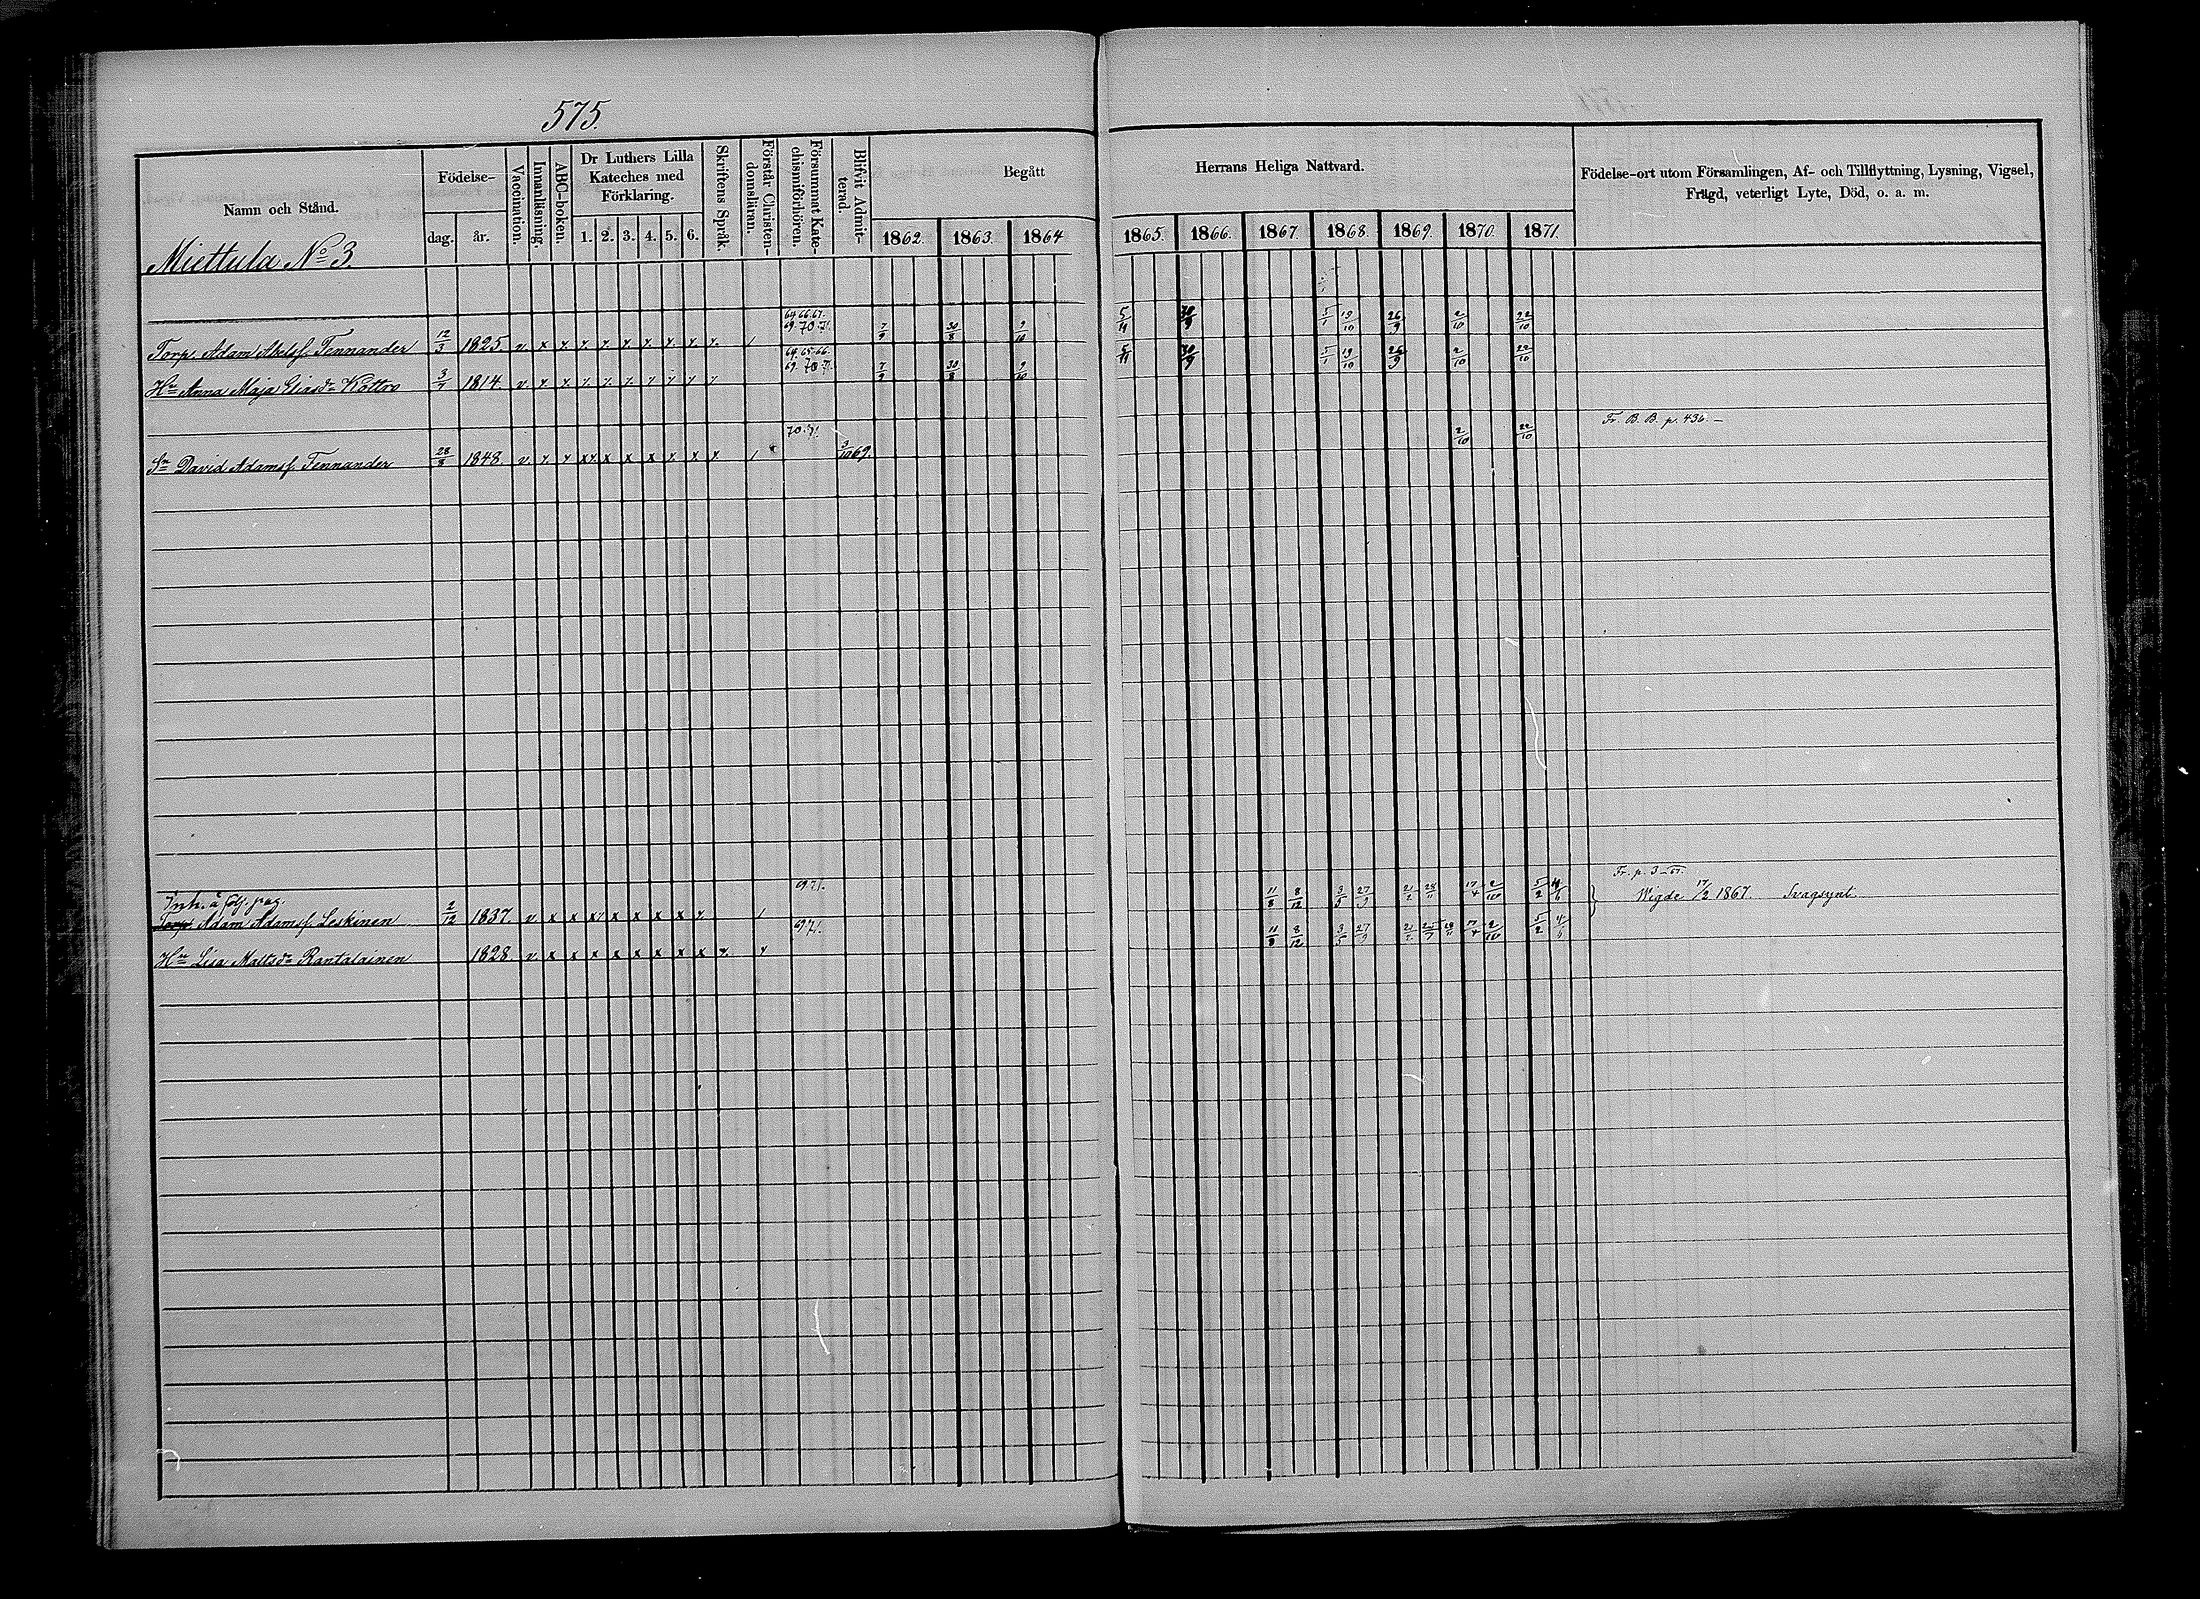 575.
Namn och Stånd.
Födelse-
dag. år.
Vaccination.
Innanläsning.
ABC-boken.
Dr Luthers Lilla
Kateches med
Förklaring.
1. 2. 3. 4. 5. 6.
Skriftens Språk.
Förstår Christen-
domsläran.
Försummat Kate-
chismiförhören.
Blifvit Admit-
terad.
Begått Herrans Heliga Nattvard.
1862. 1863. 1864 1865. 1866. 1867 1868. 1869. 1870. 1871.
Födelse-ort utom Församlingen, Af- och Tillflyttning, Lysning, Vigsel,
Frägd, veterligt Lyte, Död, o. a. m.
Miettula No 3.
64 66. 67.
69. 70. 71.
Torp. Adam Akelsf. Tennander 12/3 1825 v. x x x x x x x x x / 7/9 30/8 9/10 5/11 30/9 5/1 19/10 26/9 2/10 22/10
64. 65. 66.
69. 70. 71.
Hu Anna Maja Eliasdr Kottro 3/7 1814 v. x x x x x x x x x 7/9 30/8 9/10 5/11 30/9 5/1 19/10 26/9 2/10 22/10
70. 71.
Fr. B. B. p. 436. —
Sn David Adamsf. Tennander 28/8 1848. v. x x xx x x x x x x / 3/10 69. 2/10 22/10
Fr. p. 3
Inh. å följ. pag.
69 71.
Torp. Adam Adamsf. Leskinen 2/12 1837 v. x x xx x x x x x / 11/8 8/12 3/5 27/9 21/2 28/11 17/4 2/10 5/2 Wigde 17/2 1867. Svagsynt
69 71.
Hu Lisa Mattsdr Rantalainen 1828 v x x x x x x x x x x 11/8 8/12 3/5 27/9 21/2 25/7 28/11 17/4 2/10 5/2 4/6